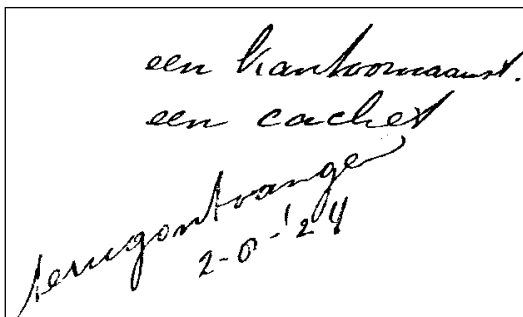 een kantoornaamst.
een cachet
terugontvangen
2-8-'24